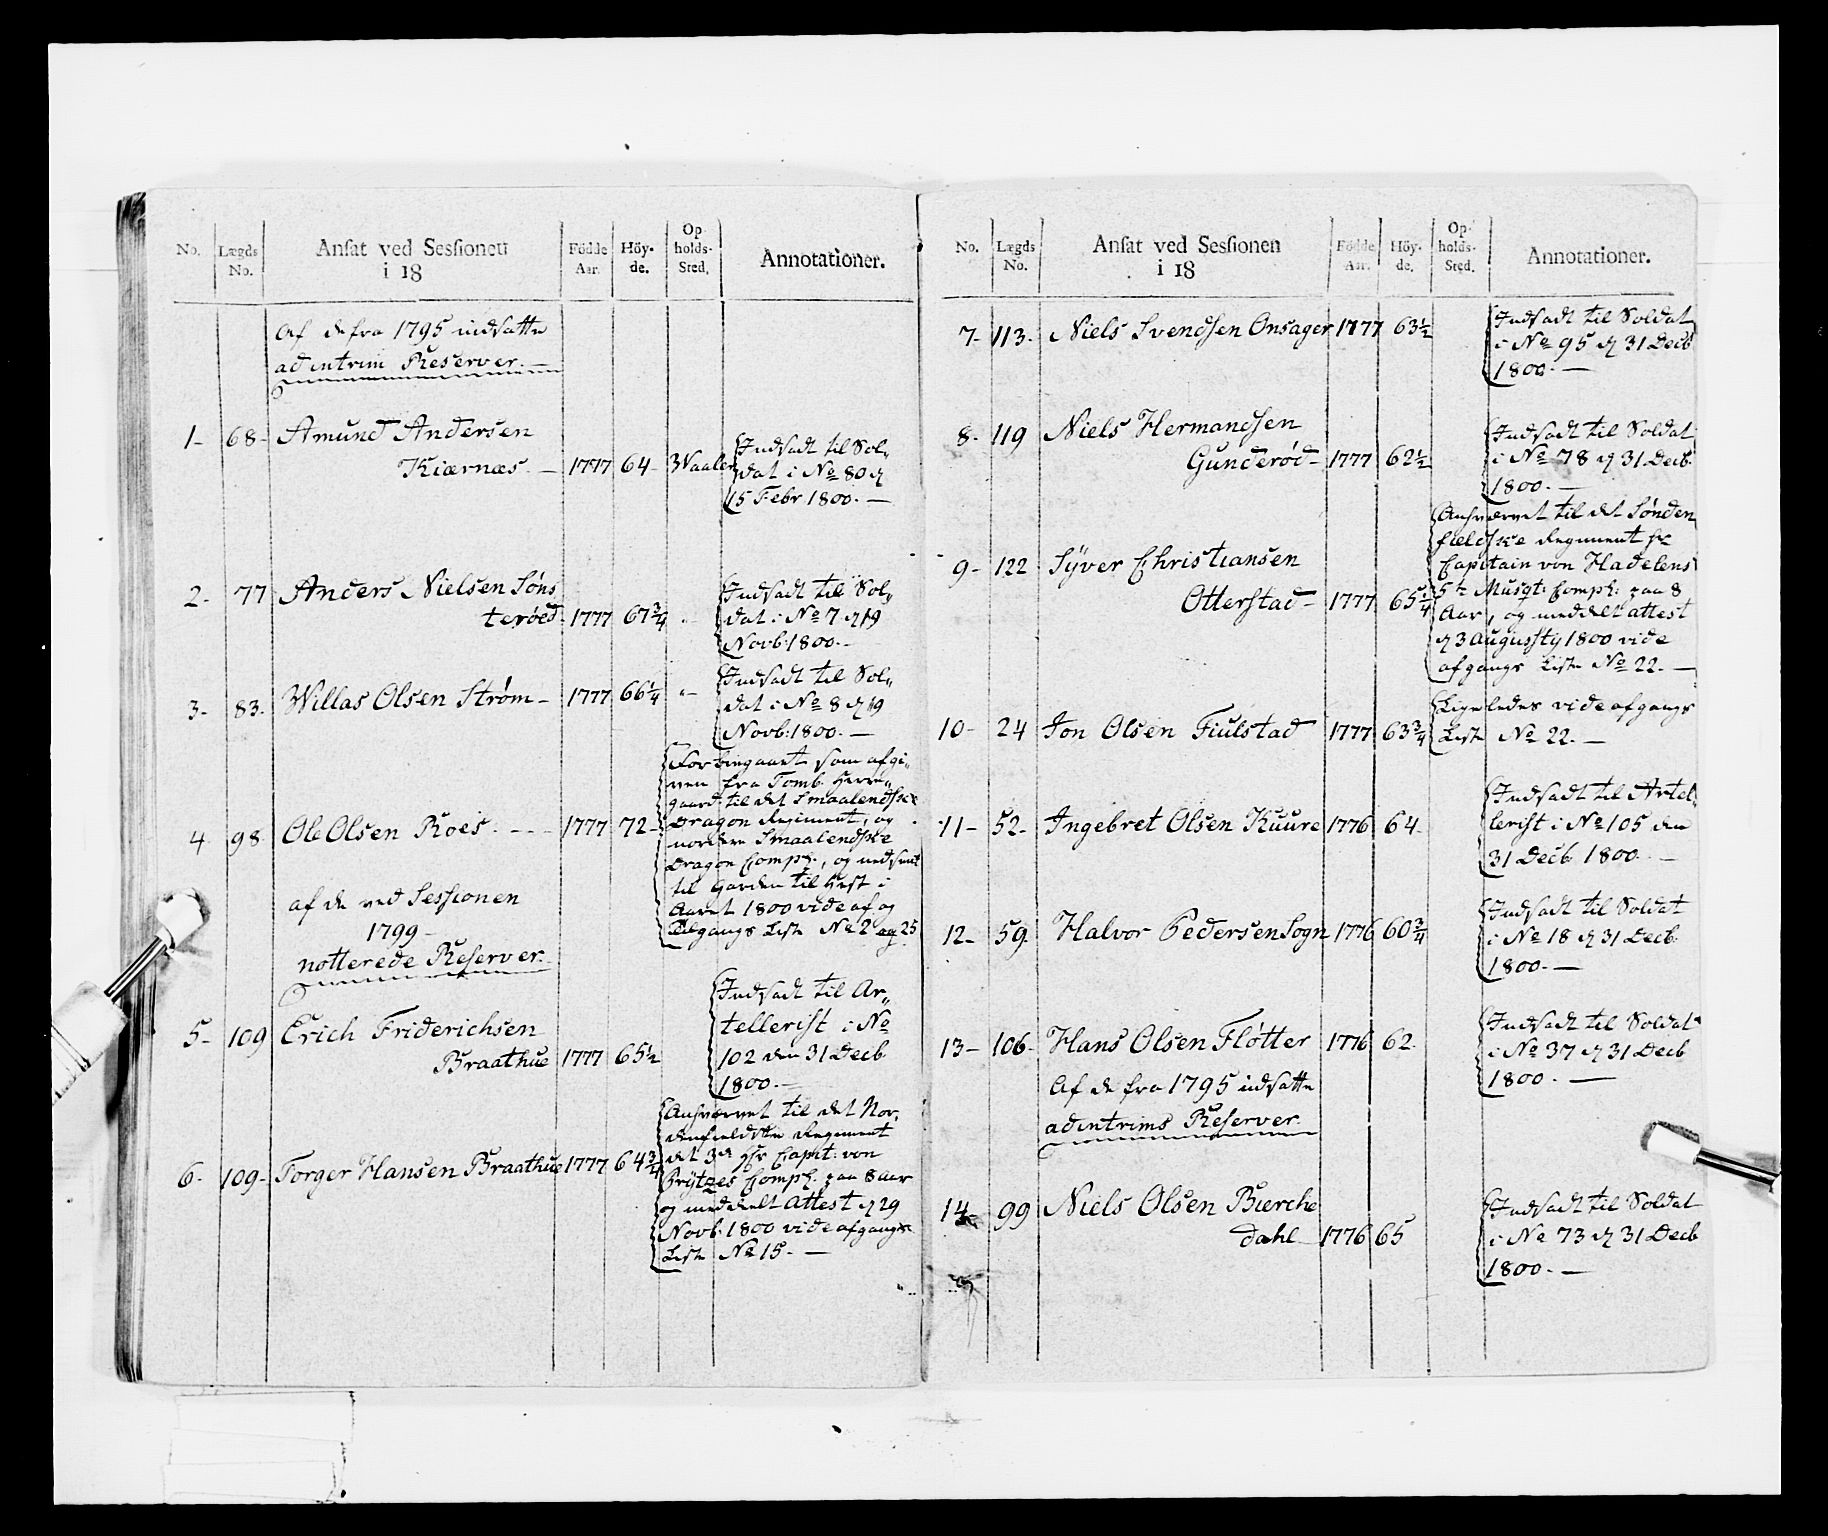 No. Lægds No. Ansat ved Sessionen i 18 Födde Aar. Höy-de. Op holds-Sted. Annotationer.
Af de fra 1795 indsatte
ad intrim Reserver. —
1- 68- Amund Andersen
Kiærnæs. — 1777 64- Waaler
Indsadt til Sol„
dat i No 80 d
15 Febr 1800. —
2- 77 Anders Nielsen Søns
terøed 1777 67¾ „
Indsadt til Sol„
dat i No 7 d 19
Novb: 1800. —
3- 83. Willas Olsen Strøm - 1777 66¼ „-
Indsadt til Sol„
dat i No 8 d 19
Novb: 1800. —
4 98 Ole Olsen Roes - - - 1777 72-
Forbingaaet som afgi„
ven fra Tomb Herre„
gaard til det Smaalendske
Dragon Regiment, og
nordere Smaalendske
Dragon Comp:, og nedsent
til Garden til Hest i
Aaret 1800 vide af og
Tilgangs Liste No 2 og 25
af de ved Sessionen
1799 -
notterede Reserver.
5- 109 Erich Friderichsen
Braathue 1777 65½
Indsadt til Ar„
tellerist i No
102 den 31 Decb
1800. —
6- 109- Torger Hansen Braathue 1777 64¾
Anhværvet til det Nor„
denfieldske Regiment
det 3de Capit: von
Prÿtzes Comp: paa 8 aar
og meddeelt Attest d 29
Novb: 1800 vide afgangs
Liste No 15. —
No. Lægds No. Ansat ved Sessionen i 18 Födde Aar. Höy-de. Op-holds-Sted. Annotationer.
7- 113- Niels Svendsen Onsager 1777 63½
Indsadt til Soldat
i No 95 d 31 Decb
1800. —
8- 119 Niels Hermandsen
Gunderød - 1777 62½
Indsadt til Soldat
i No 78 d 31 Decb.
1800. —
9- 122 Sÿver Christiansen
Otterstad - 1777 65¼
Anhværvet til det Sønden
fieldske Regiment
Capitain von Hadelens
5te Musqt: Comp: paa 8
Aar, og meddelt attest
d 3 Augusty 1800 vide
afgangs Liste No 22. —
10- 24 Jon Olsen Fiulstad 1777 63¾
Ligeledes vide afgangs
Liste No 22. —
11- 52- Ingebret Olsen Kuure 1776 64
Indsadt til Artel„
lerist i No 105 den
31 Decb 1800. —
12- 59. Halvor Pedersen Sogn 1776 60¾
Indsadt til Soldat
i No 18 d 31 Decb.
1800. —
13- 106- Hans Olsen Fløtter 1776 62.
Indsadt til Soldat
i No 37 d 31 Decb
1800. —
Af de fra 1795 indsatte
ad intrims Reserver.
14 99 Niels Olsen Bierche
dahl 1776 65
Indsadt til Soldat
i No 73 d 31 Decb
1800. —